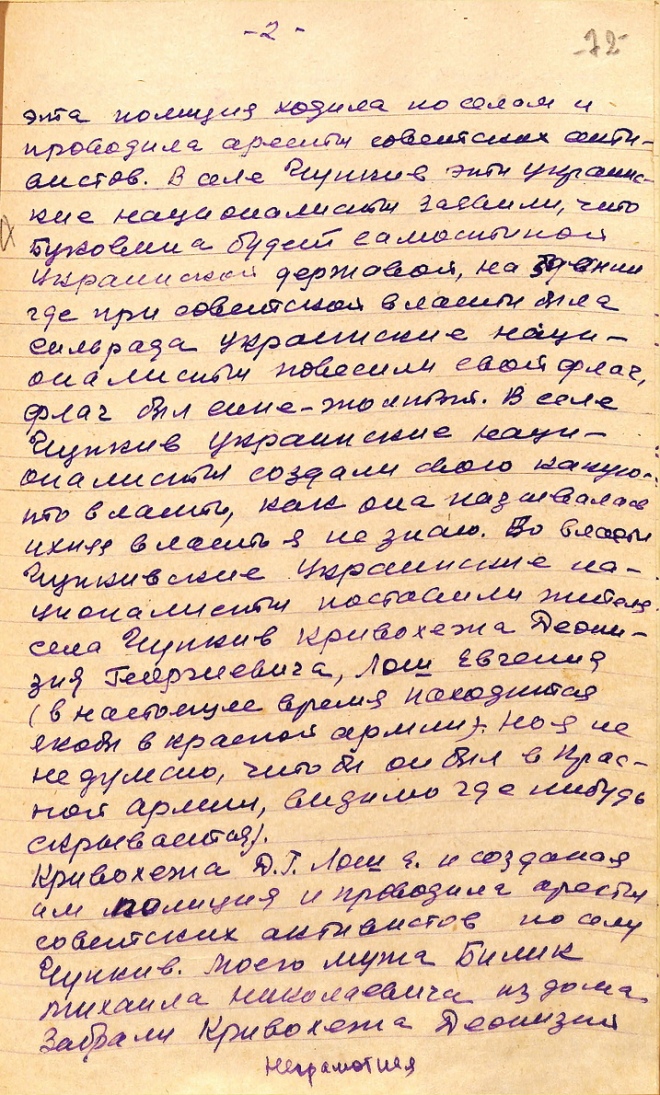 -2-
-72-
эта полиция ходила по селам и
проводила аресты советских акти-
вистов. В селе Чункив эти украинс-
кие националисты заявили, что
Буковина будет самостыной
украинской державой, на здании
где при советской власти была
сильрада украинские наци-
оналисты повесили свой флаг,
флаг был сине-жолтый. В селе
Чункив украинские наци-
оналисты создали свою какую-
то власть, как она називалась
ихняя власть я не знаю. Во власти
Чункивские украинские на-
ционалисты поставили жителя
села Чункив Кривохежа Деони-
зия Георгиевича, Лош Евгения
(в настоящее время находится
якобы в красной армии). Но я не
не думаю, что бы он был в Крас-
ной армии, видимо где нибудь
скрывается).
Кривохежа Д.Г. Лош Е. и созданая
им полиция и проводила аресты
советских активистов по селу
Чункив. Моего мужа Билик
Михаила Николаевича из дома
забрали Кривохежа Деонизий
Неграмотная